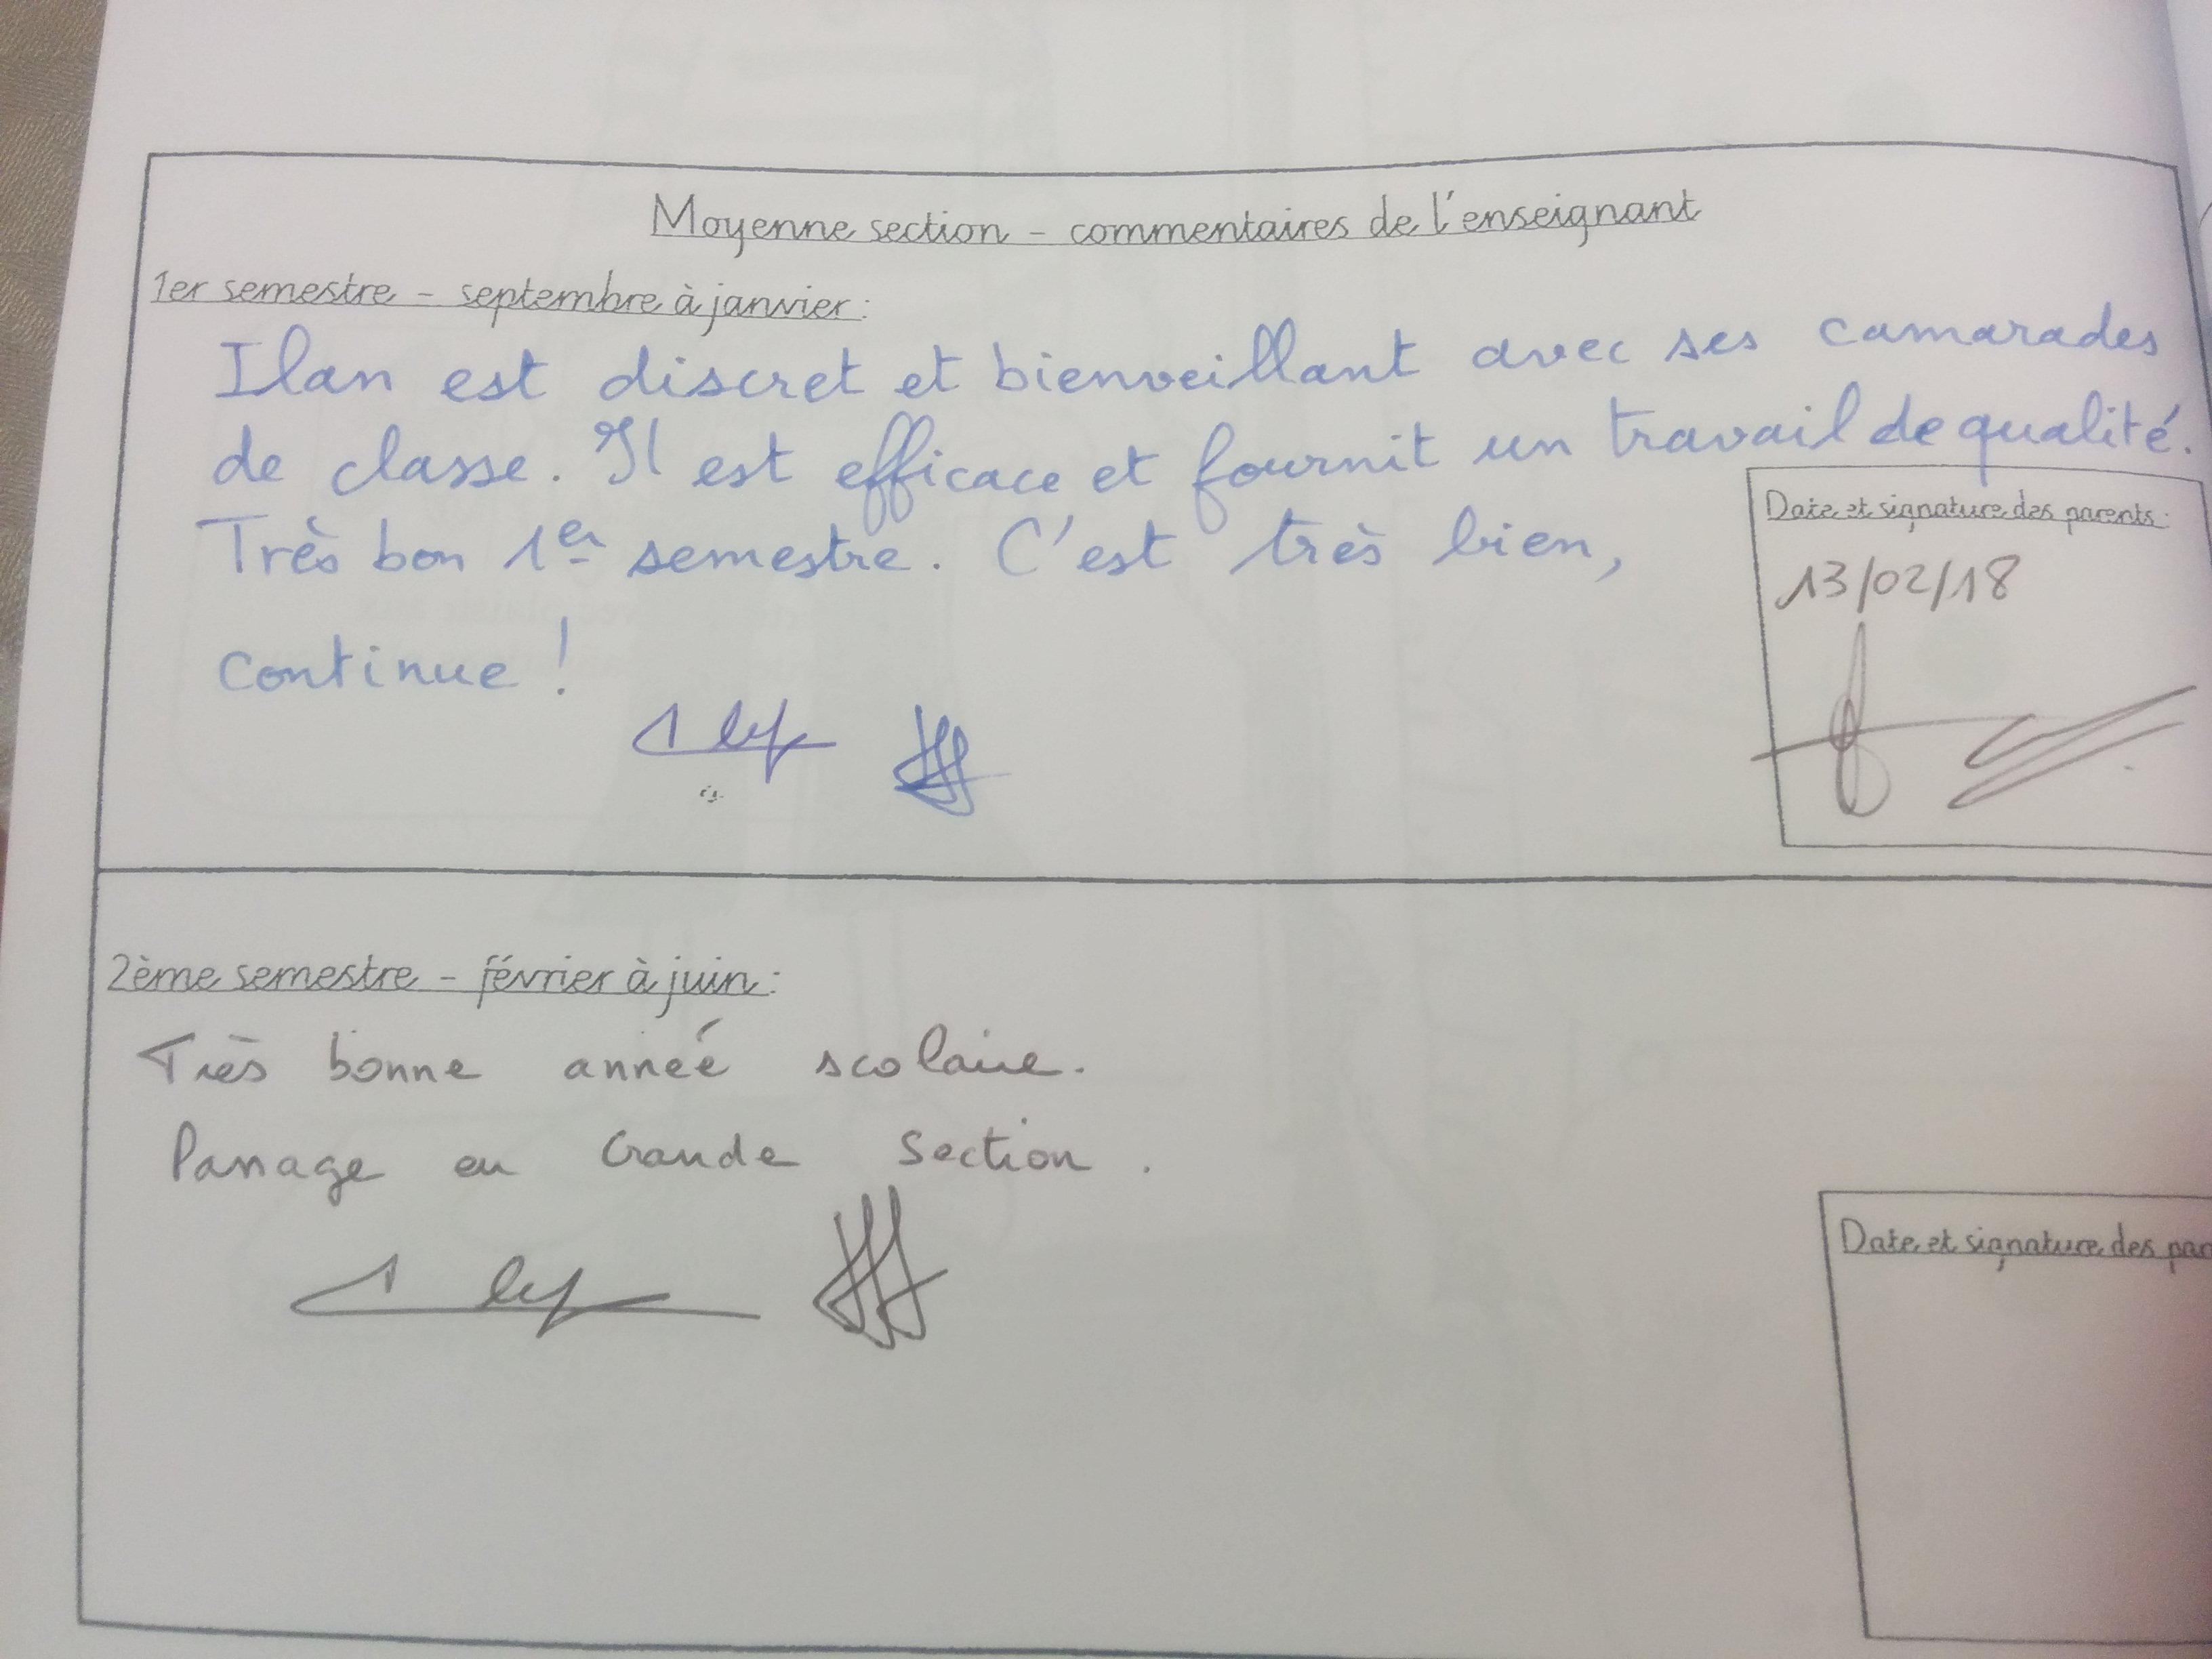 Moyenne section - commentaires de l'enseignant
1er semestre - septembre à janvier :
Ilan est discret et bienveillant avec ses camarades
de classe. Il est efficace et fournit un travail de qualité.
Très bon 1er semestre. C'est très bien,
continue !
Date et signature des parents :
13/02/18
2ème semestre - février à juin :
Très bonne année scolaire.
Passage en Grande Section.
Date et signature des par